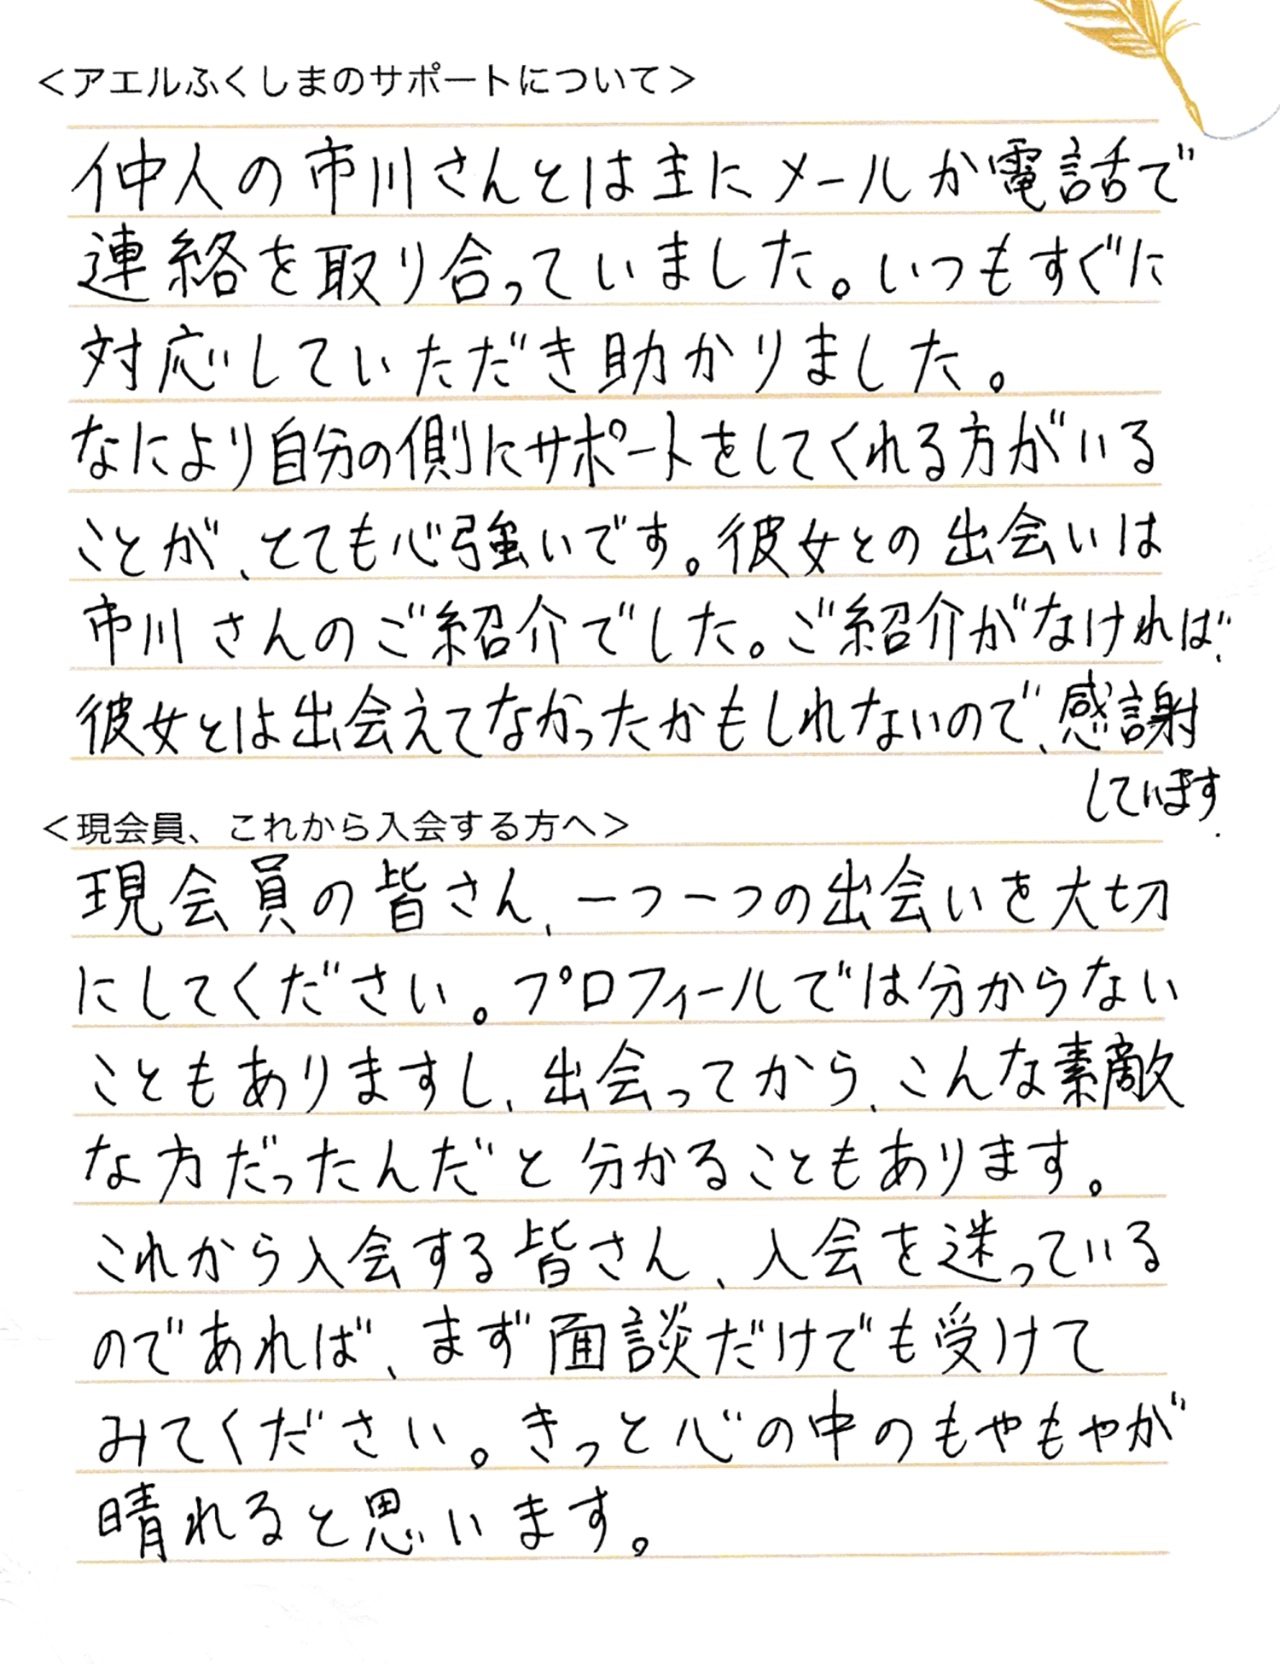 ＜アエルふくしまのサポートについて＞
仲人の市川さんとは主にメールか電話で
連絡を取り合っていました。いつもすぐに
対応していただき助かりました。
なにより自分の側にサポートをしてくれる方がいる
ことが、とても心強いです。彼女との出会いは
市川さんのご紹介でした。ご紹介がなければ、
彼女とは出会えてなかったかもしれないので、感謝
しています.
＜現会員、これから入会する方へ＞
現会員の皆さん、一つ一つの出会いを大切
にしてください。プロフィールでは分からない
こともありますし、出会ってから、こんな素敵
な方だったんだと分かることもあります。
これから入会する皆さん、入会を迷っている
のであれば、まず面談だけでも受けて
みてください。きっと心の中のもやもやが
晴れると思います。